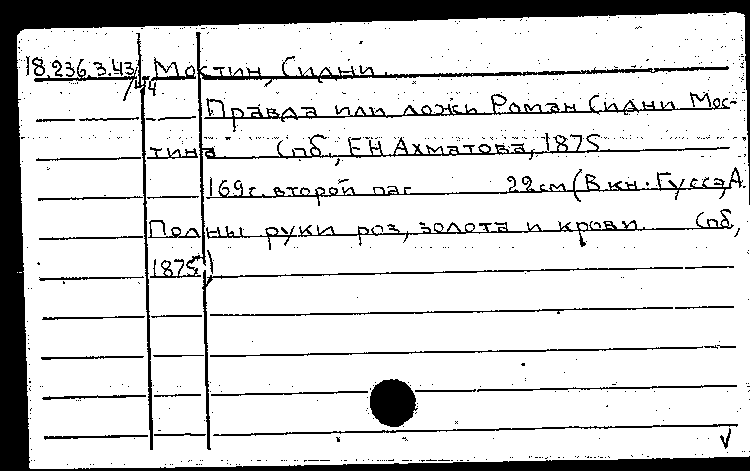 18.236.3.43/44 Мостин, Сидни.
Правда или ложи Роман Сидни Мос-
тина. Спб., ЕН Ахматова, 1875.
169 с. второй паг 22 см (В кн.: Гуссэ, А.
Полны руки роз, золота и крови. Спб,
1875)
V